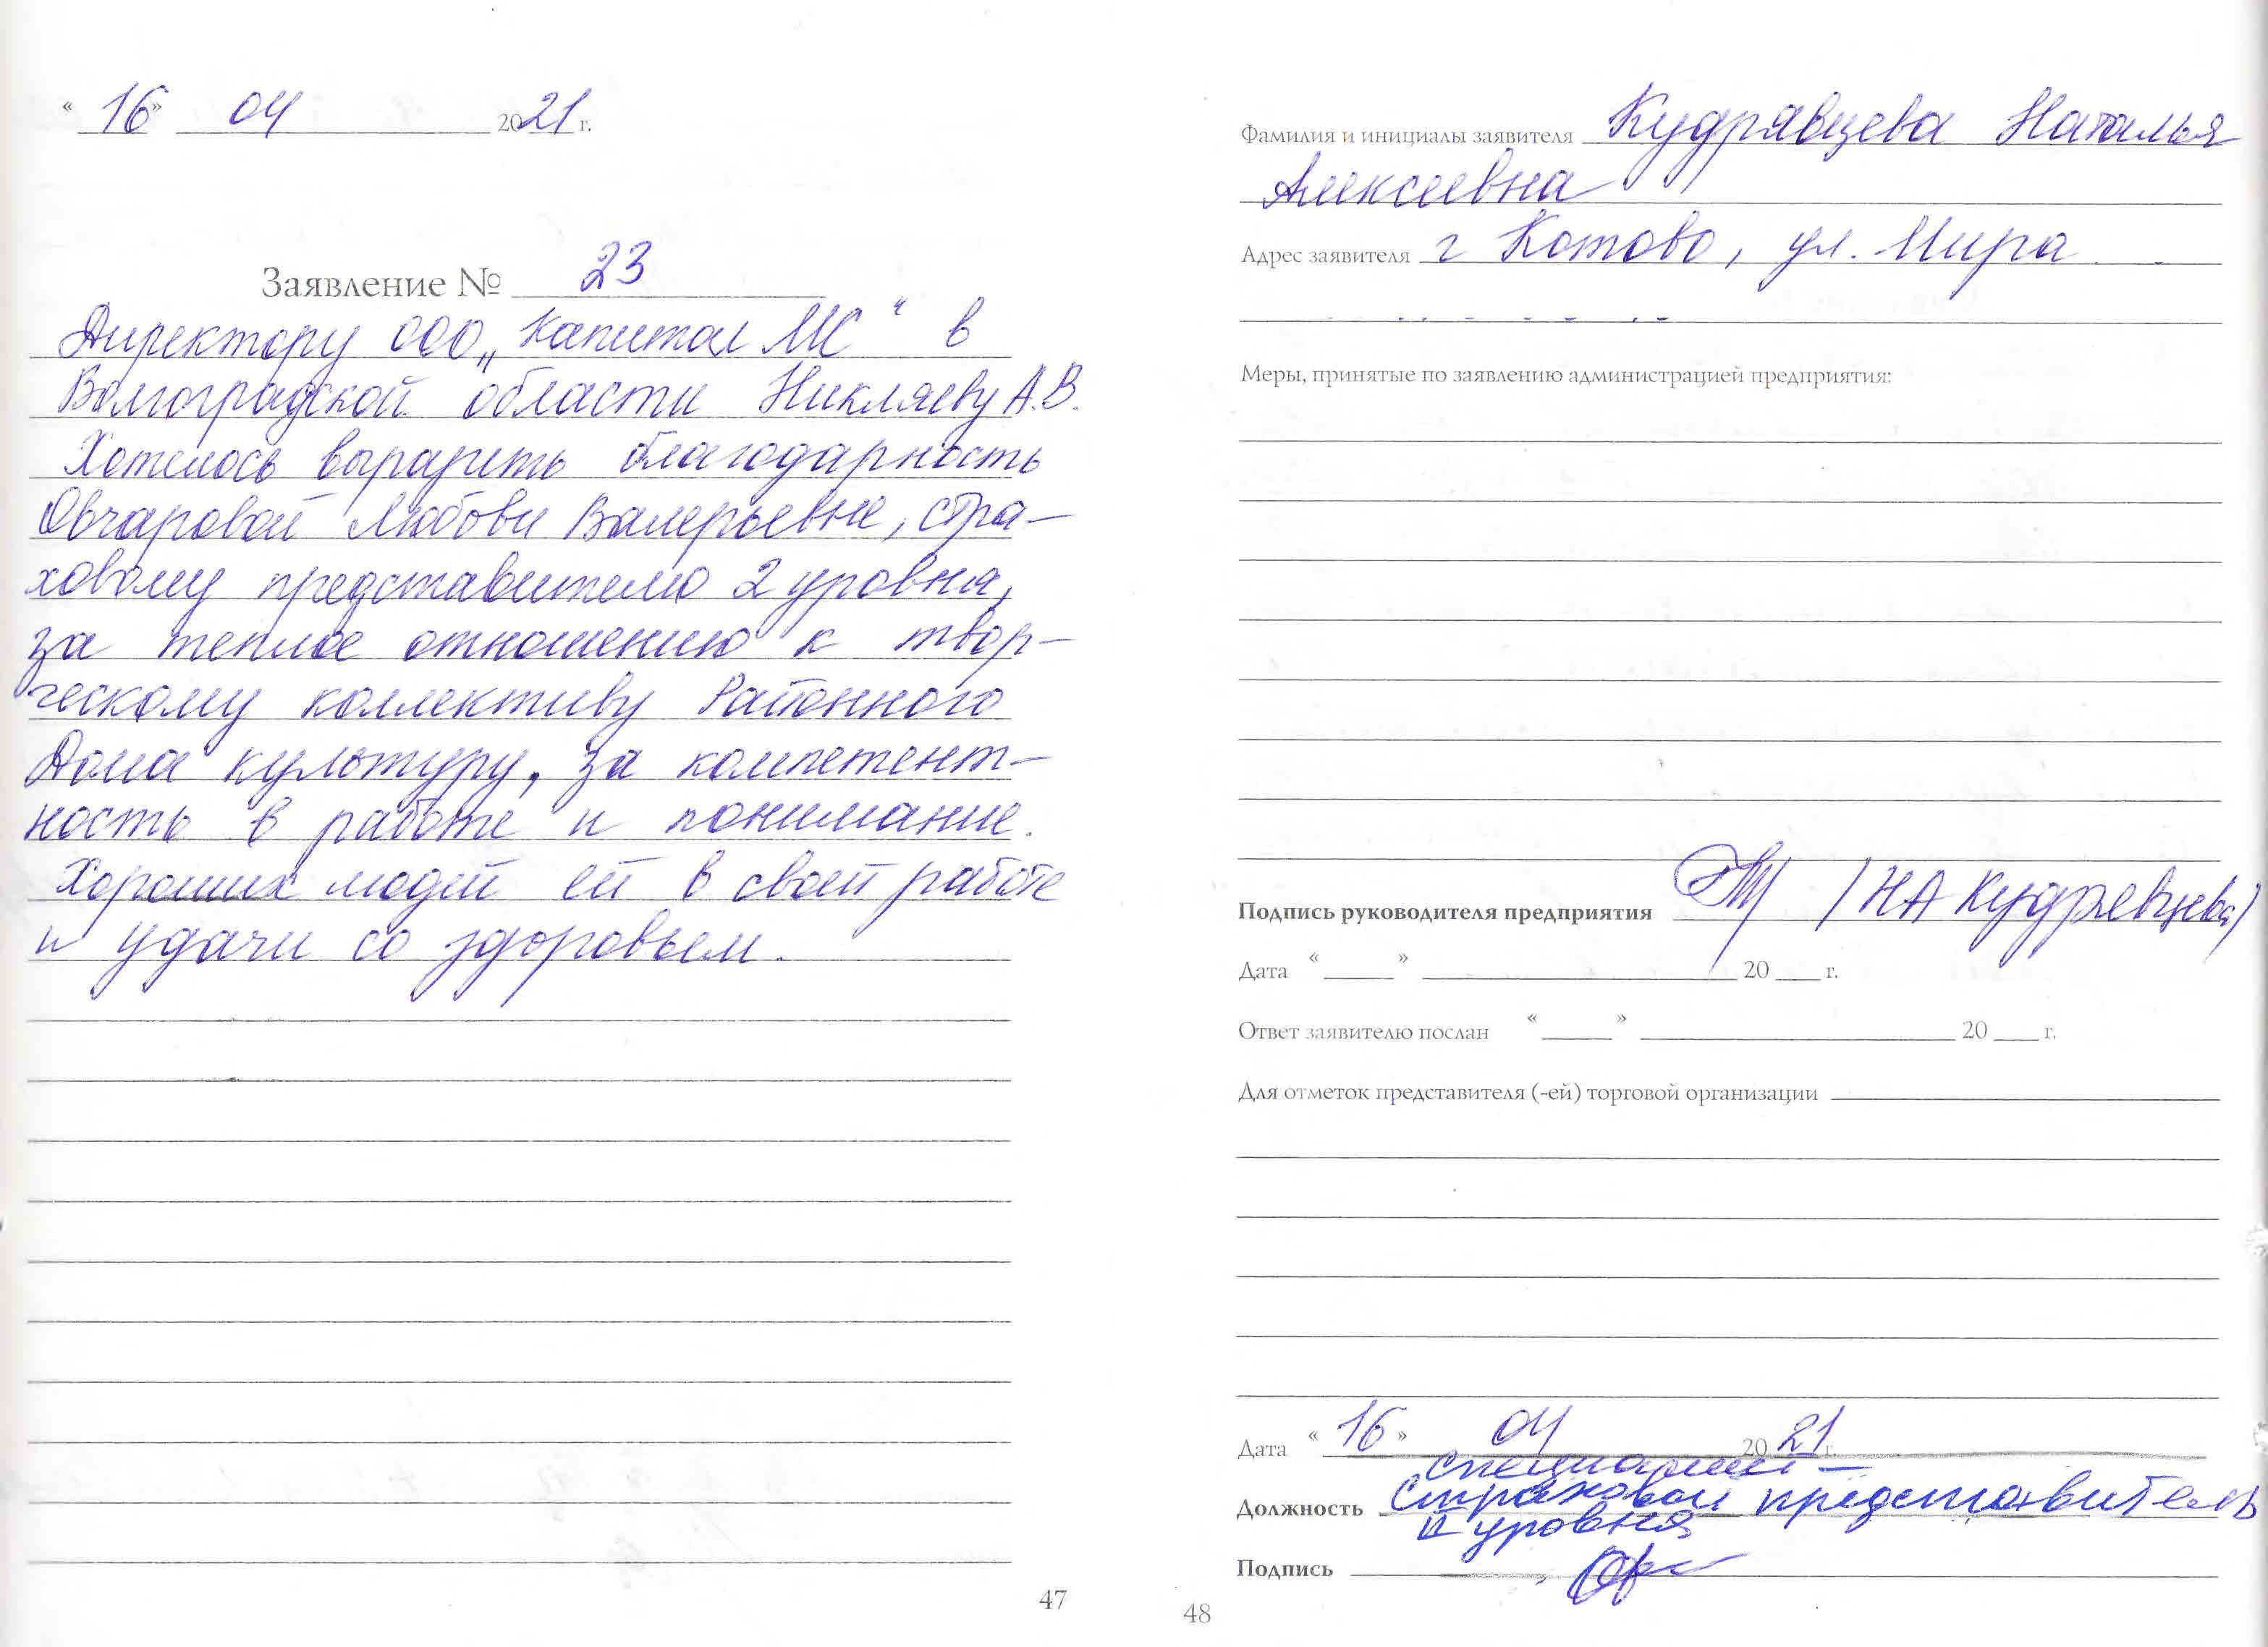 « 16 » 04 2021 г.
Заявление № 23
Директору ООО „Капитал МС“ в
Волгоградской области Никляеву А.В.
Хотелось выразить благодарность
Овчаровой Любови Валерьевне, стра-
ховому представителю 2 уровня,
за теплое отношению к твор-
ческому коллективу Районного
Дома культуру, за компетент-
ность в работе и понимание.
Хороших людей ей в своей работе
и удачи со здоровьем.
47
Фамилия и инициалы заявителя Кудрявцева Наталья
Алексеевна
Адрес заявителя г Котово, ул. Мира
Меры, принятые по заявлению администрацией предприятия:
Подпись руководителя предприятия /НА Кудрявцева/
Дата « » 20 г.
Ответ заявителю послан « » 20 г.
Для отметок представителя (-ей) торговой организации
Дата « 16 » 04 2021 г.
специалист -
Должность страховой представитель
II уровня
Подпись
48